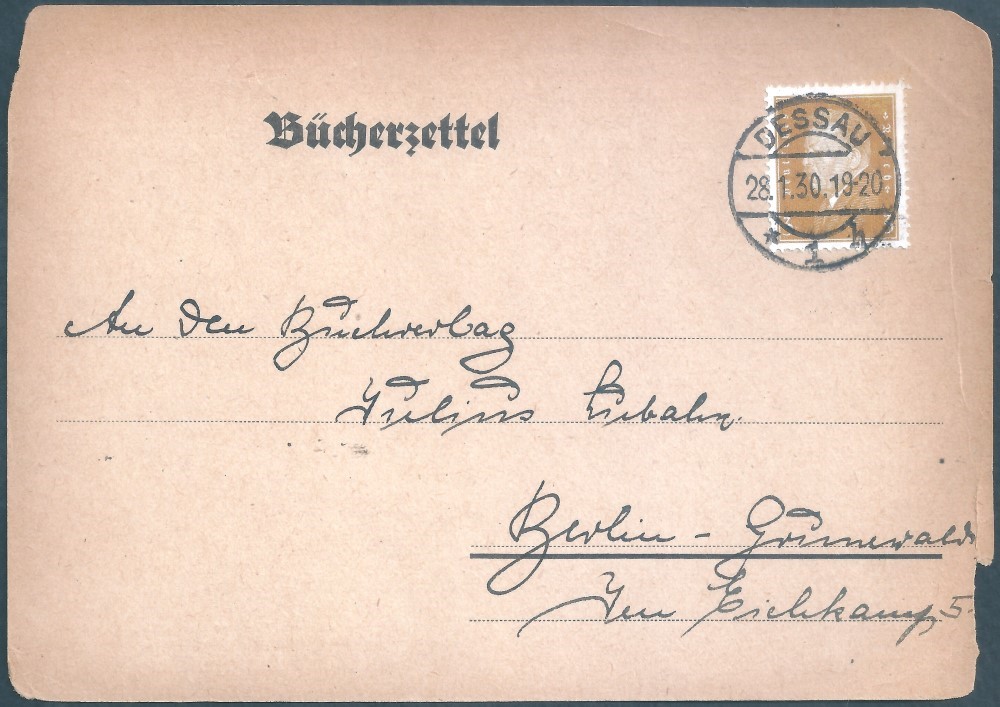 Bücherzettel
DESSAU
28.1.30.19-20
* 1 h
An den Buchverlag
Julius
Berlin - Grunewald
Im Eichkamp 5.